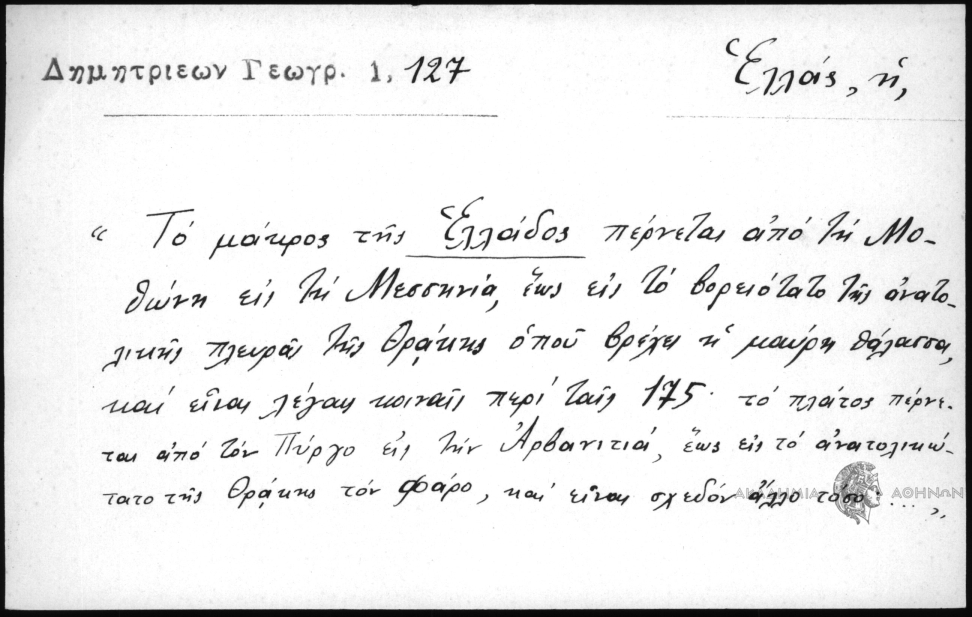 Δημητριεων Γεωγρ. 1, 127
Ἑλλάς, ἡ,
“ Τό μάκρος τῆς Ἑλλάδος πέρνεται ἀπό τή Μο-
θώνη εἰς τή Μεσσηνία, ἕως εἰς τό βορειότατο τῆς ἀνατο-
λικῆς πλευρᾶς τῆς Θρᾴκης ὁποῦ βρέχει ἡ μαύρη θάλασσα,
καί εἶναι λέγαις κοιναῖς περί ταῖς 175· τό πλάτος πέρνε-
ται ἀπό τόν Πύργο εἰς τήν Ἀρβανιτιά, ἕως εἰς τό ἀνατολικώ-
τατο τῆς Θρᾴκης τόν Φάρο, καί εἶναι σχεδόν ἄλλο τόσο ... „
ΑΚΑΔΗΜΙΑ ΑΘΗΝΩΝ